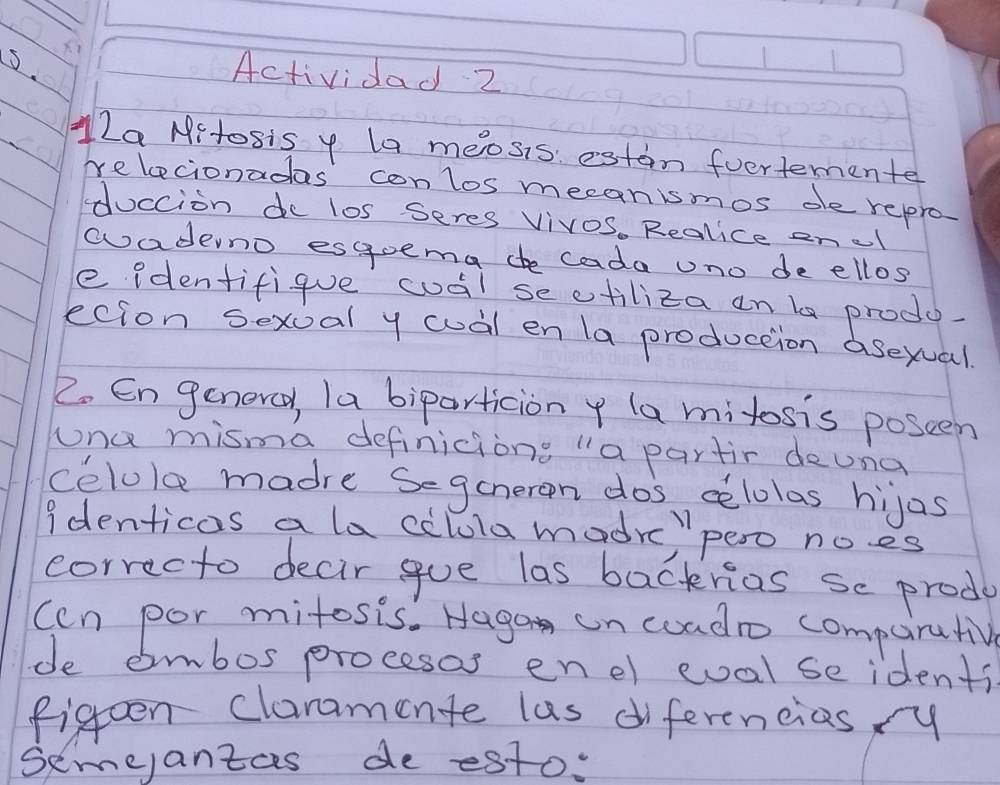 Actividad 2
1 La Mitosis y la meiosis. están fuertemente
relacionadas con los mecanismos de repro-
ducción de los seres vivos. Realice en el
cuaderno esquema de cada uno de ellos
e identifique cuál se utiliza en la produ-
cción sexual y cuál en la producción asexual.
2. En general, la bipartición y la mitosis poseen
una misma definición: "a partir de una
célula madre se generan dos células hijas
identicas a la célula madre" pero no es
correcto decir que las bacterias se produ
cen por mitosis. Hagan un cuadro comparativo
de ambos procesos en el cual se identi-
fiquen claramente las diferencias y
semejanzas de esto: